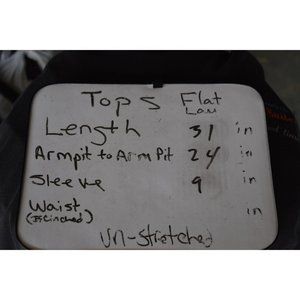 Tops Flat
Law
Length 31 in
Armpit to Arm Pit 24 in
Sleeve 9 in
Waist in
(IS Cinched)
Un-Stretched